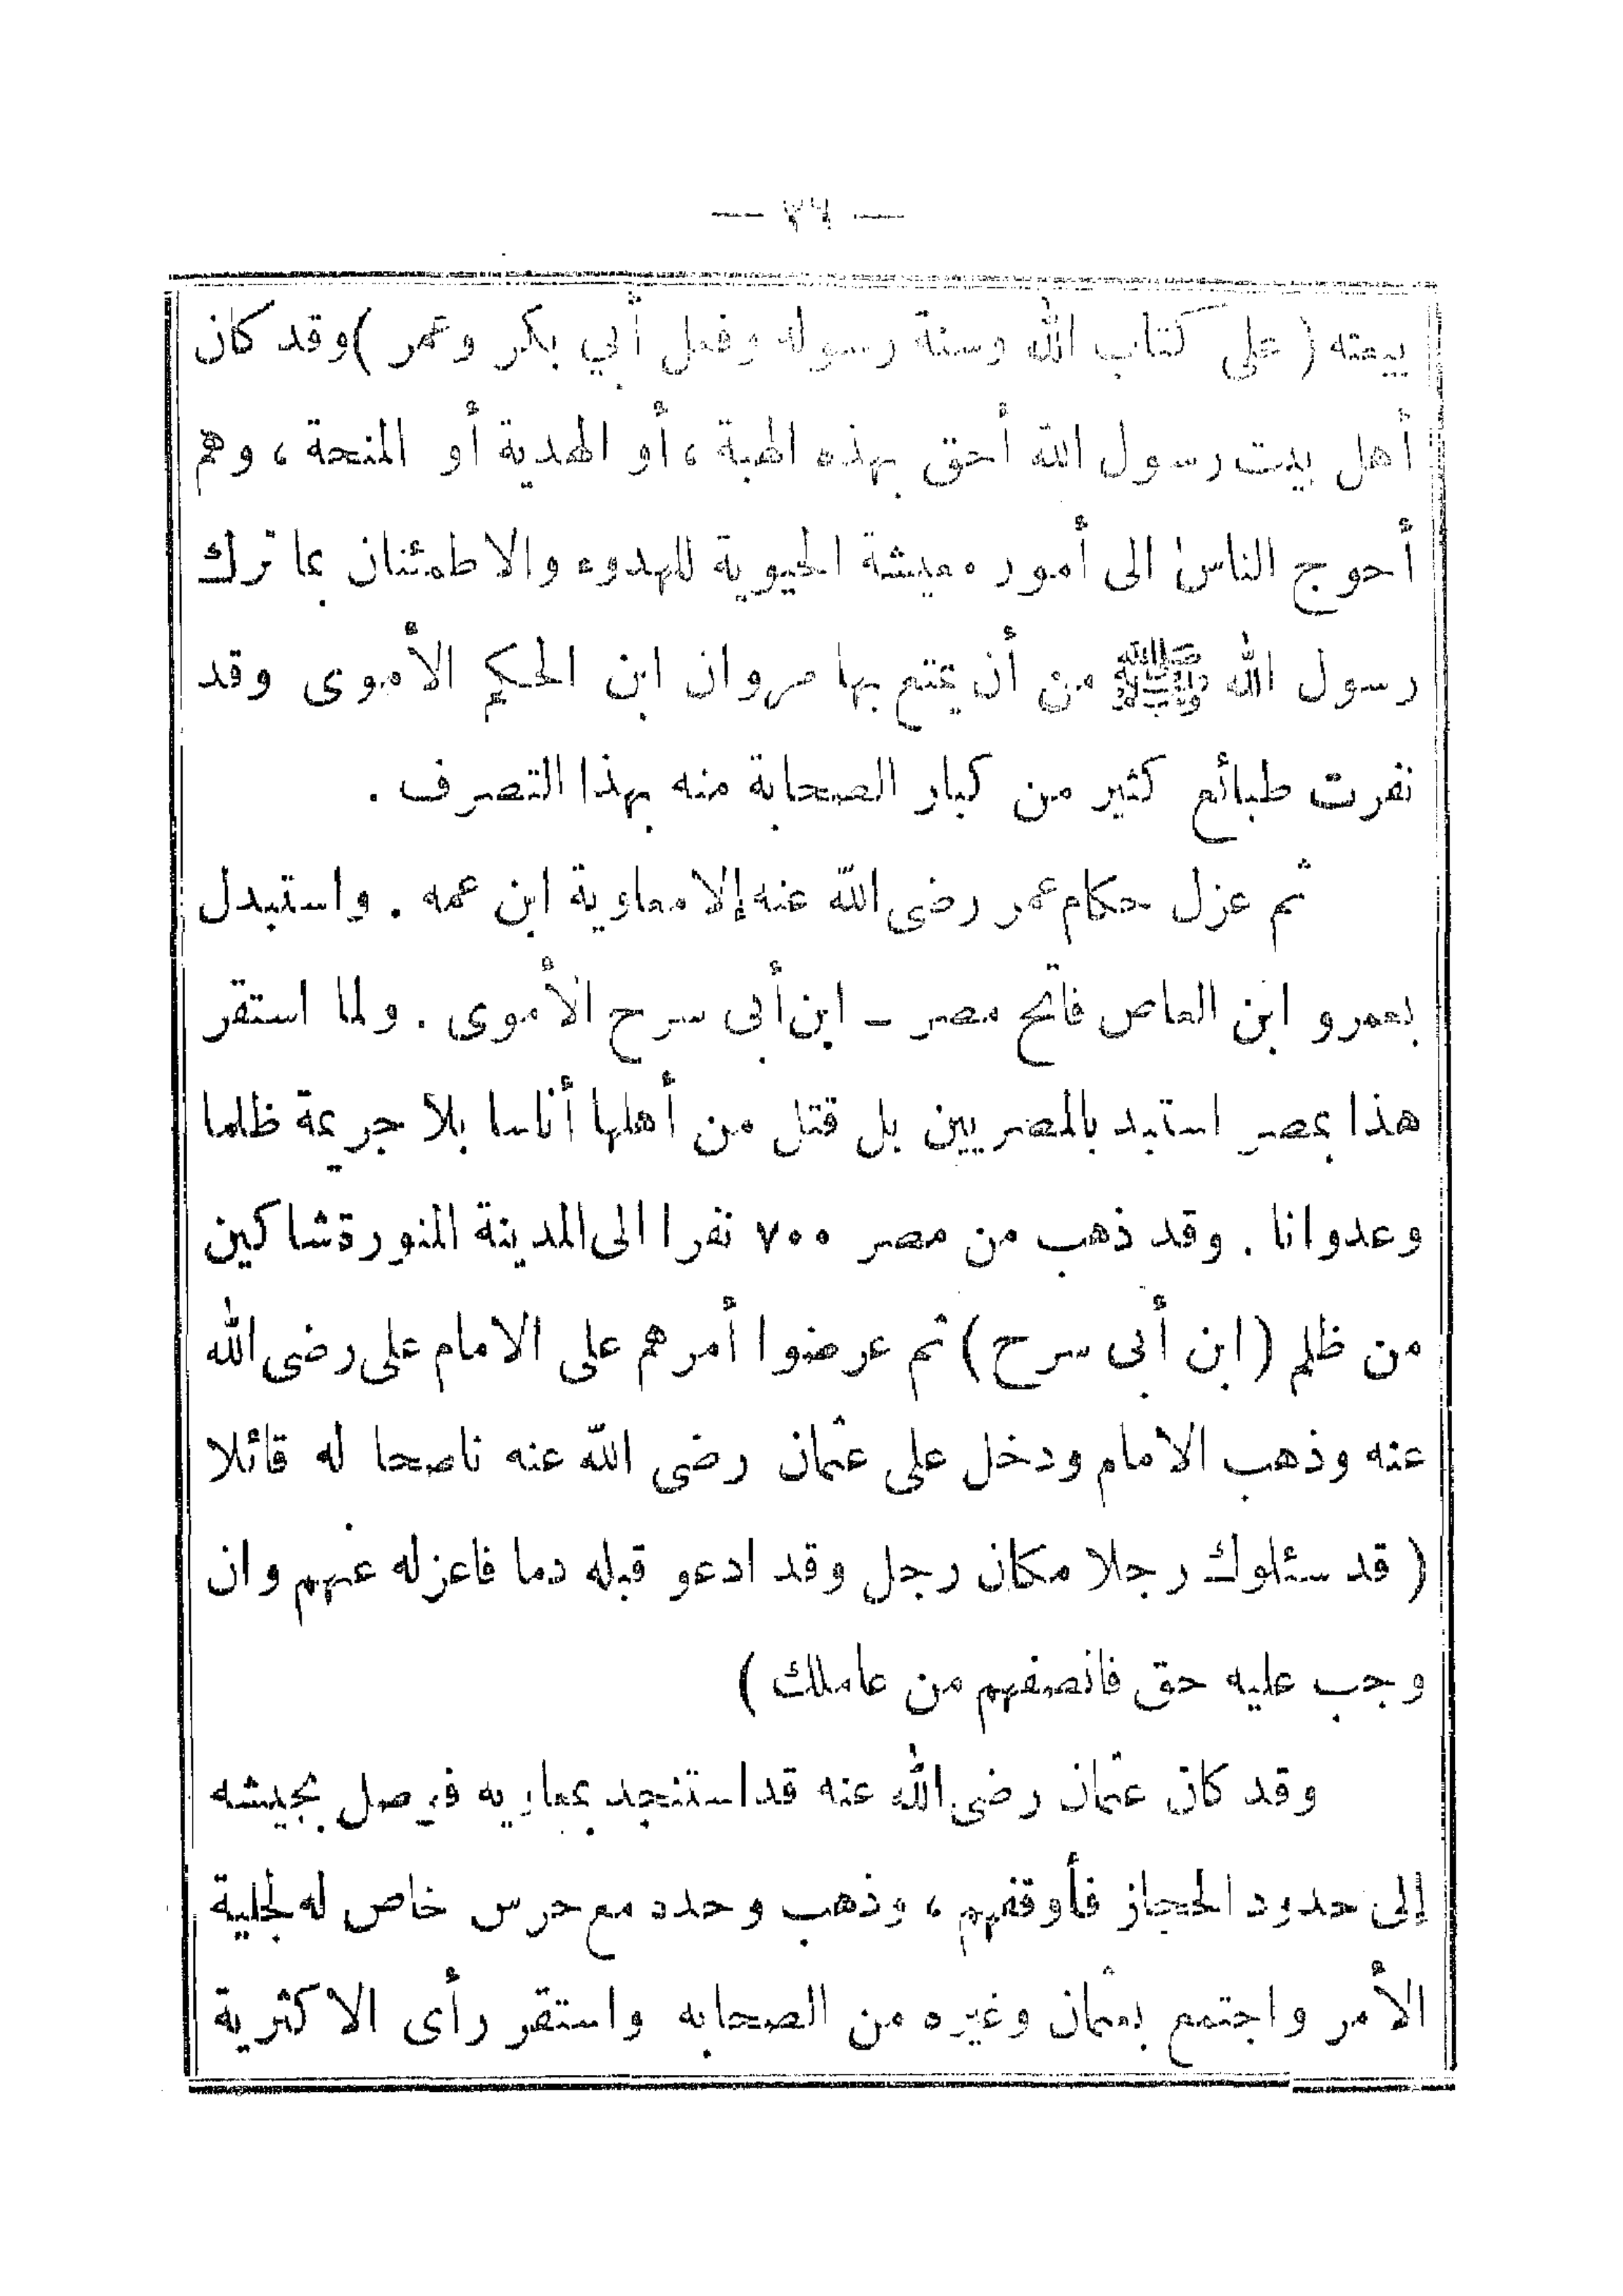 بيعته ( على كتاب الله وسنة رسوله وفعل أبي بكر وعمر )وقد كان
أهل بيت رسول الله أحق بهذه الهبة ، أو الهدية أو المنحة ، وهم
أحوج الناس الى أمور معيشة الحيوية للهدوء والاطمئنان بما ترك
رسول الله ﷺ من أن يتمتع بها مروان ابن الحكم الأموى وقد
نفرت طبائع كثير من كبار الصحابة منه بهذا التصرف .
ثم عزل حكام عمر رضى الله عنه إلا معاوية ابن عمه . واستبدل
بعمرو ابن العاص فاتح مصر - ابن أبى سرح الأموى . ولما استقر
هذا بمصر استبد بالمصريين بل قتل من أهلها أناسا بلا جريمة ظلما
وعدوانا . وقد ذهب من مصر ٧٠٠ نفرا الى المدينة المنورة شاكين
من ظلم ( ابن أبى سرح ) ثم عرضوا أمرهم على الامام على رضى الله
عنه وذهب الامام ودخل على عثمان رضى الله عنه ناصحا له قائلا
( قد سئلوك رجلا مكان رجل وقد ادعو قبله دما فاعزله عنهم وان
وجب عليه حق فانصفهم من عاملك )
وقد كان عثمان رضى الله عنه قد استنجد بمعاويه فوصل بجيشه
إلى حدود الحجاز فأوقفهم ، وذهب وحده مع حرس خاص له لجلية
الأمر واجتمع بعثمان وغيره من الصحابه واستقر رأى الاكثرية